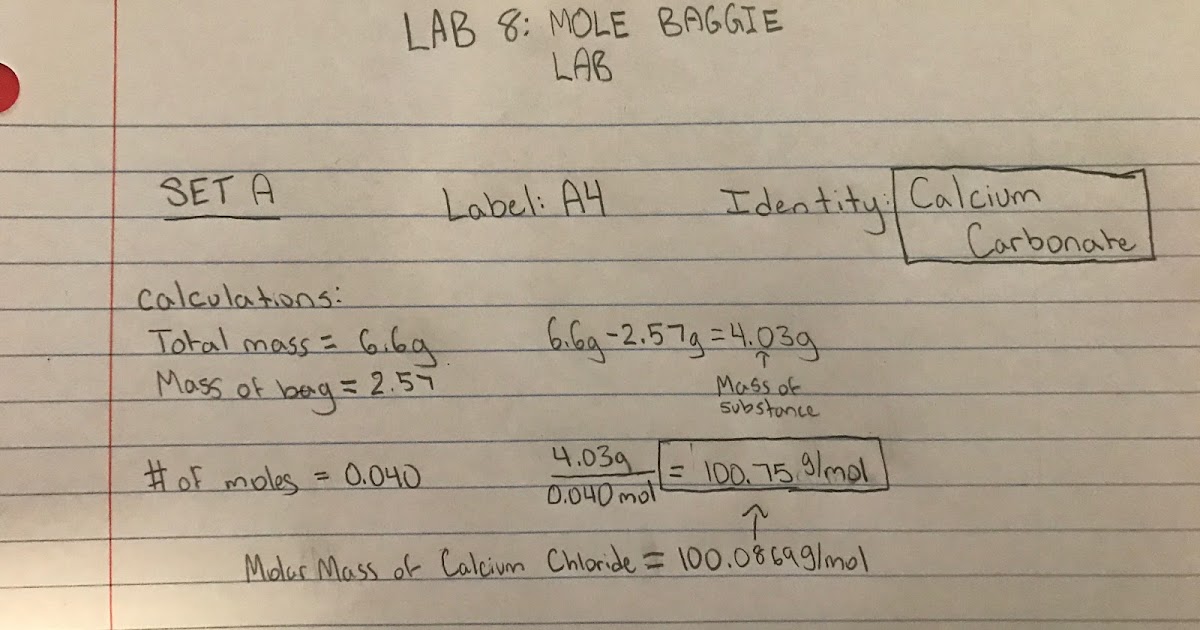 LAB 8: MOLE BAGGIE
LAB
SET A Label: A4 Identity: Calcium
Carbonate
Calculations:
Total mass = 6.6g 6.6g - 2.57g = 4.03g
Mass of bag = 2.57 ↑
Mass of
substance
# of moles = 0.040 4.03g
0.040 mol = 100.75 g/mol
↑
Molar Mass of Calcium Chloride = 100.0869g/mol